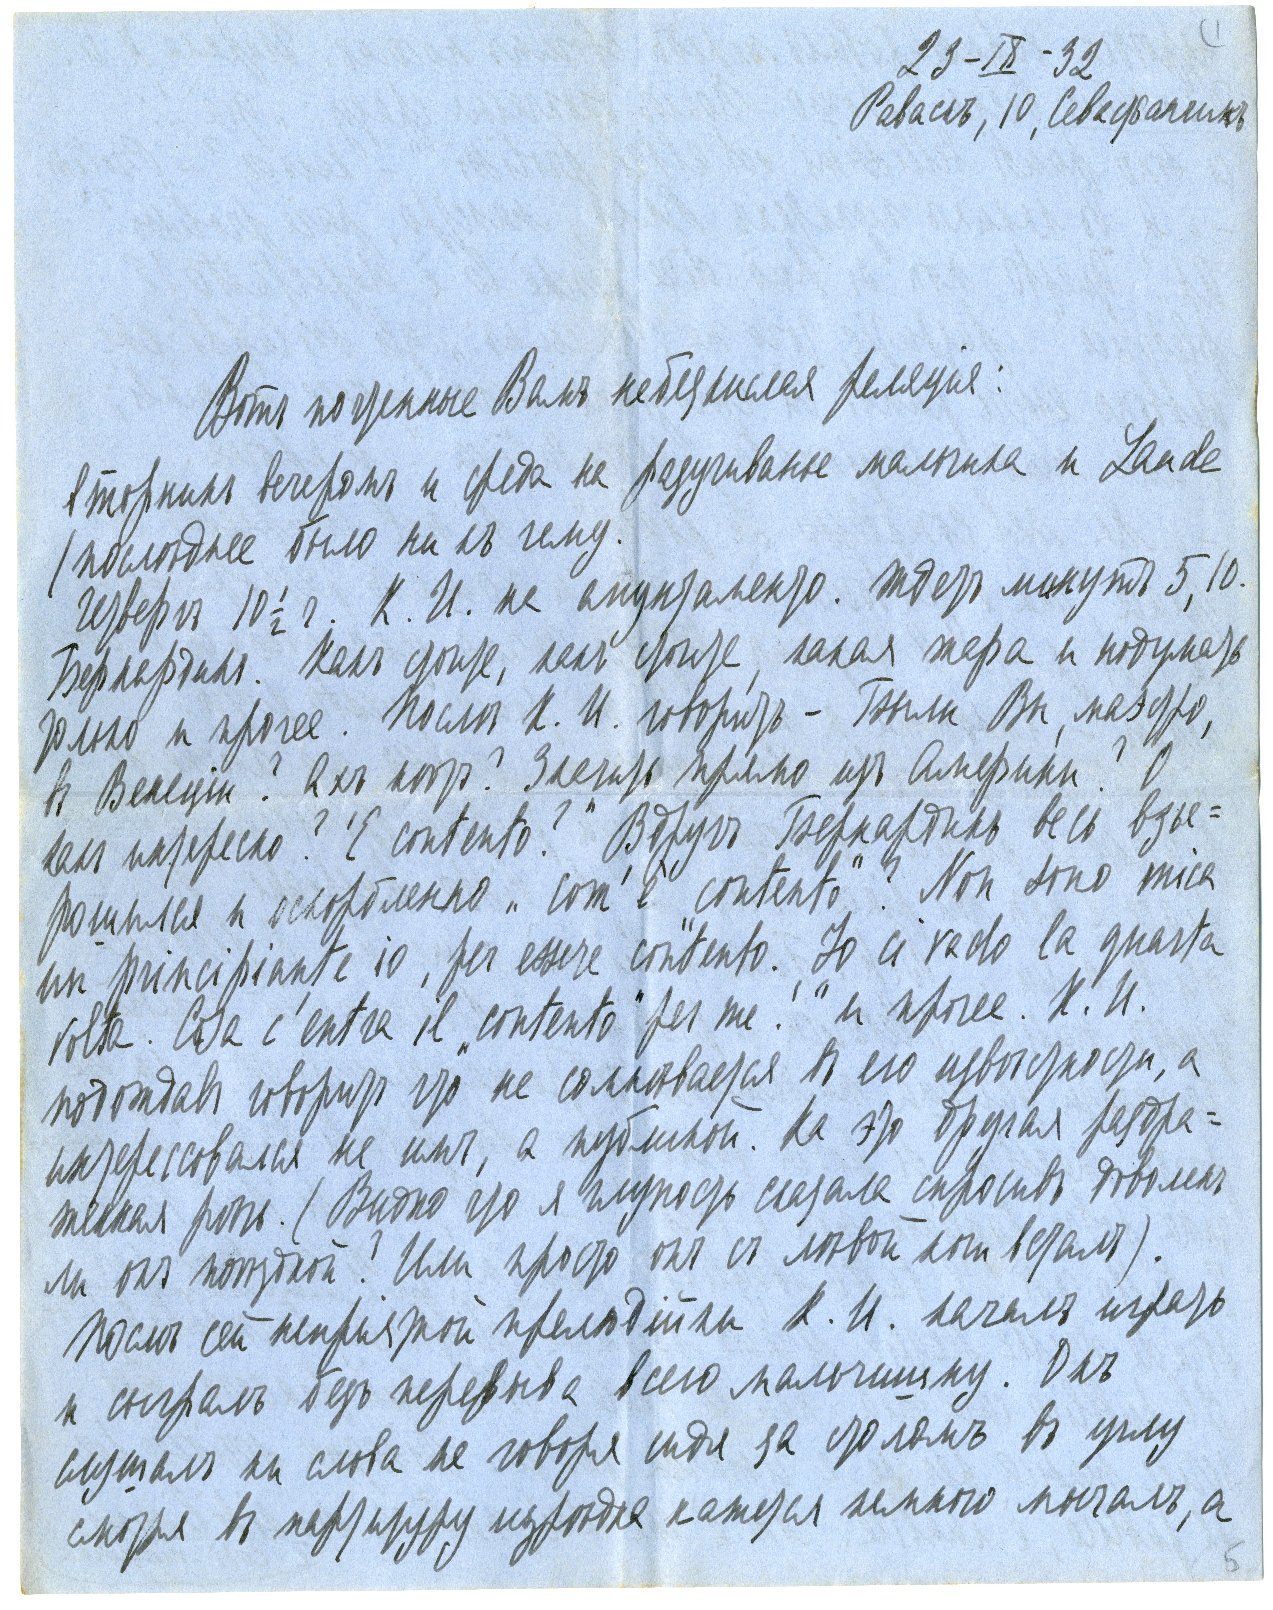 (1
23-IX-32
Равасъ, 10, Севастьяникъ
Вотъ почтенные Вамъ небезъислая реляція:
вторникъ вечеромъ и среда на разучиванье мальчика и Laude
(послѣднее было ни къ чему.
Четвергъ 10½ ч. К. И. на апунтаменто. Ждетъ минутъ 5, 10.
Бернардинъ. Какъ стоите, какъ стоите, какая жара и подумать
только и прочее. Послѣ К. И. говоритъ – Были Вы, маэстро,
въ Венеціи? Ахъ нѣтъ? Значитъ прямо изъ Америки? О
какъ интересно? "E contento?" Вдругъ Бернардинъ весь взъе=
рошился и оскорбленно „com'è "contento"? Non sono mica
un principiante io, per essere contento. Io ci vado la quarta
volta. Cosa c'entra il „contento" per me!" и прочее. К. И.
подождавъ говоритъ что не сомнѣвается въ его извѣстности, а
интерессовался не имъ, а публикой. На это другая раздра=
женная рѣчь. (Видно что я глупость сказала спросивъ доволенъ
ли онъ поѣздкой? Или просто онъ съ лѣвой ноги всталъ).
Послѣ сей непріятной прелюдійки К. И. началъ играть
и сыгралъ безъ перерыва всего мальчишку. Онъ
слушалъ ни слова не говоря сидя за столомъ въ углу
смотря въ партитуру изрѣдка кажется немного мычалъ, а
5